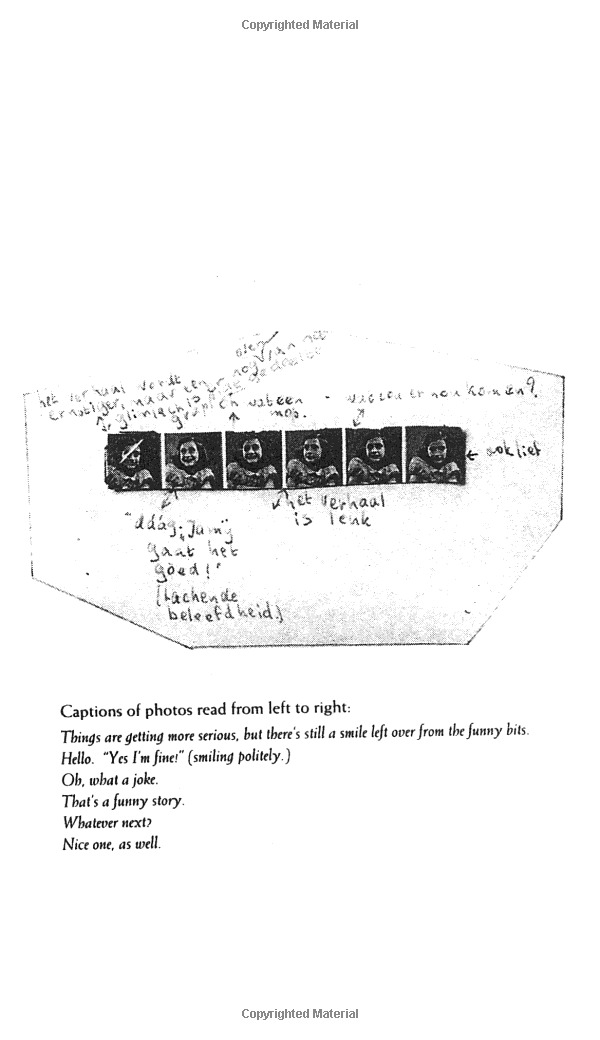 Copyrighted Material
het verhaal wordt
ernstiger, maar een
glimlach is er nog van het
grappige gedeelte
over
Oh wat een
mop.
- wat zou er nou komen?
ook lief
het verhaal
is leuk
"ddág, Ja mij
gaat het
goed!"
(Lachende
beleefdheid.)
Captions of photos read from left to right:
Things are getting more serious, but there's still a smile left over from the funny bits.
Hello. "Yes I'm fine!" (smiling politely.)
Oh, what a joke.
That's a funny story.
Whatever next?
Nice one, as well.
Copyrighted Material